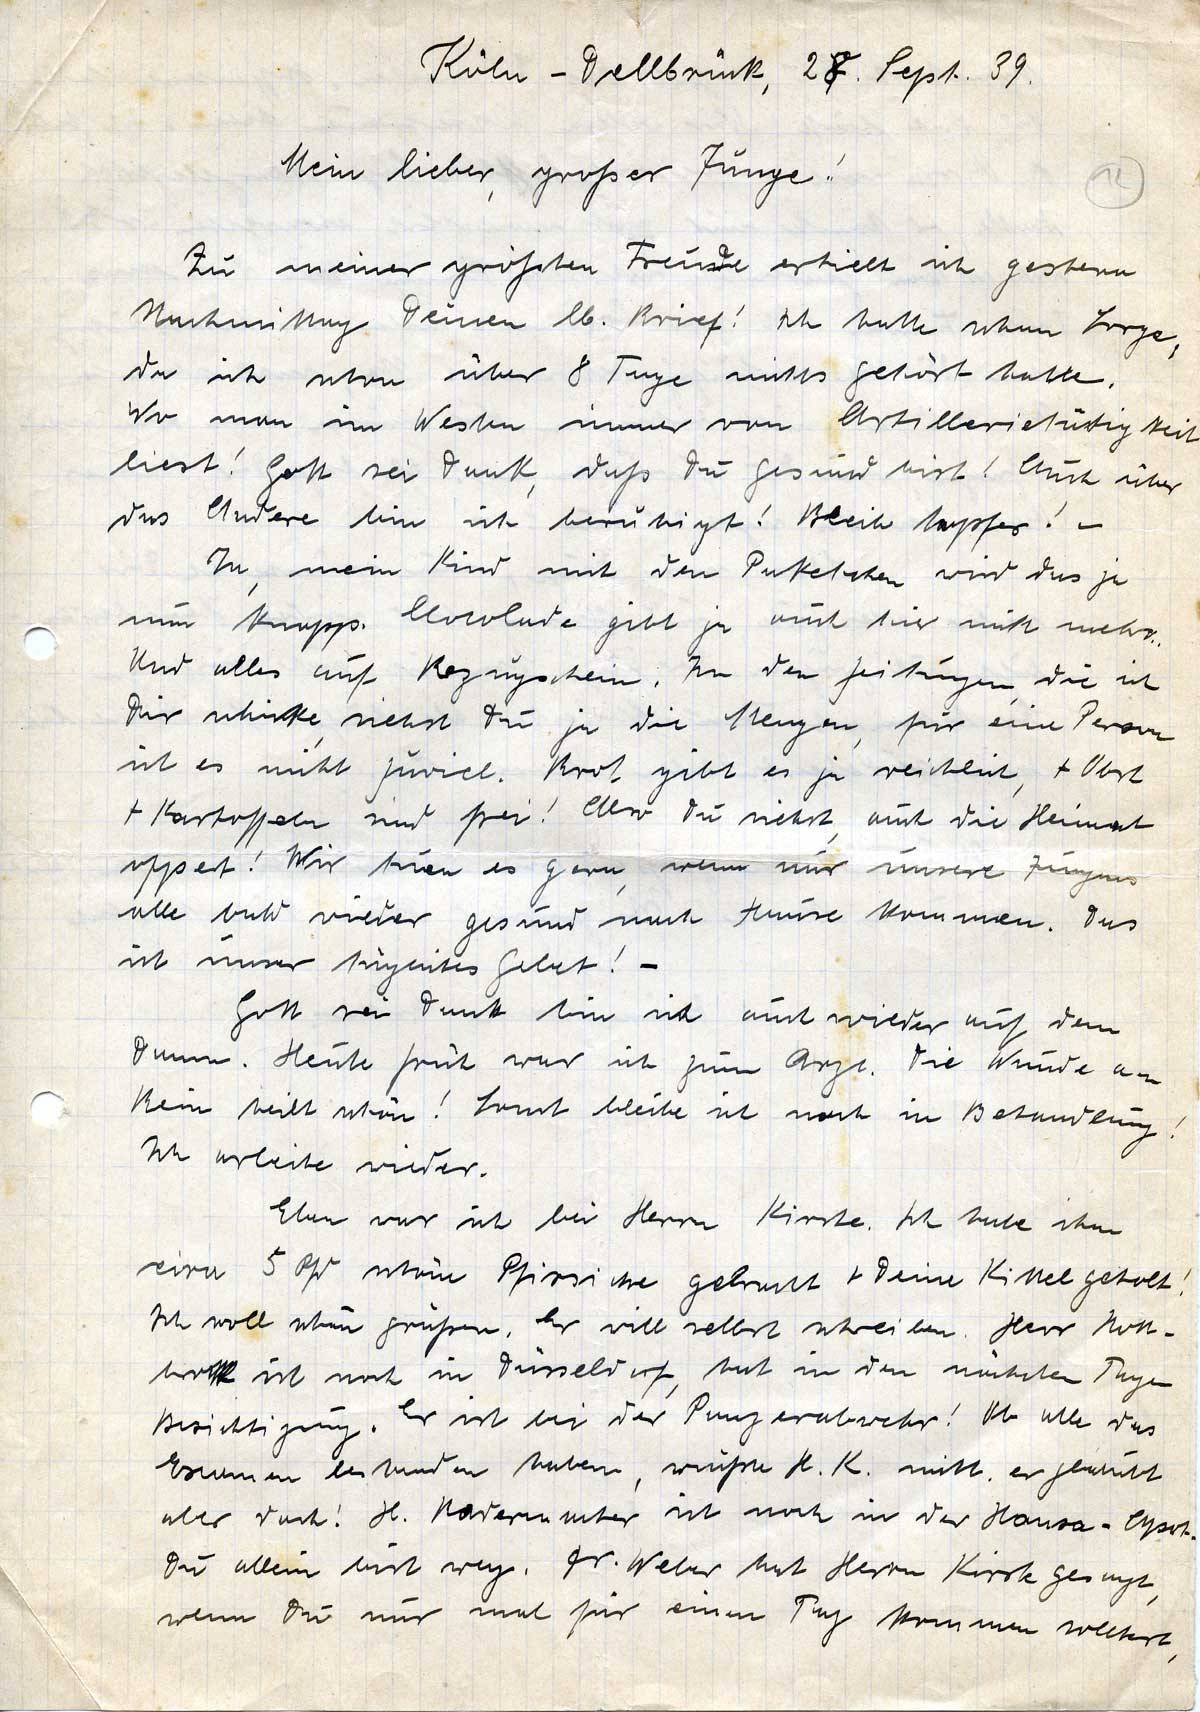 Köln - Dellbrück, 27. Sept. 39.
Mein lieber, großer Junge!
Zu meiner größten Freude erhielt ich gestern
Nachmittag Deinen lb. Brief! Ich hatte schon Sorge,
da ich schon über 8 Tage nichts gehört hatte.
Wo man im Westen immer von Artillerietätigkeit
liest! Gott sei Dank, daß Du gesund bist! Auch über
das Andere bin ich beruhigt! Bleib tapfer! -
Ja, mein Kind mit den Paketchen wird das ja
nun knapp. Chocolade gibt ja auch hier nicht mehr.
Und alles auf Bezugschein. In den Zeitungen, die ich
Dir schicke, siehst Du ja die Mengen, für eine Person
ist es nicht zuviel. Brot gibt es ja reichlich, + Obst
+ Kartoffeln sind frei! Also Du siehst, auch die Heimat
opfert! Wir tuen es gern, wenn nur unsere Jungens
alle bald wieder gesund nach Hause kommen. Das
ist unser tägliches Gebet! -
Gott sei Dank bin ich auch wieder auf dem
Damm. Heute früh war ich zum Arzt. Die Wunde am
Bein heilt schön! Sonst bleibe ich noch in Behandlung!
Ich arbeite wieder.
Eben war ich bei Herrn Kirste. Ich habe ihm
circa 5 Pfd schöne Pfirsiche gebracht + Deine Kittel geholt!
Ich soll schön grüßen. Er will selbst schreiben. Herr
ist noch in Düsseldorf, hat in den nächsten Tagen
Besichtigung. Er ist bei der Panzerabwehr! Ob alle das
Examen bestanden haben, wußte H. K. nicht, er glaubt
aber doch! H. Radermacher ist noch in der Hansa-Apoth.
Du allein bist weg. Fr. Weber hat Herrn Kirste gesagt,
wenn Du nur mal für einen Tag kommen solltest,